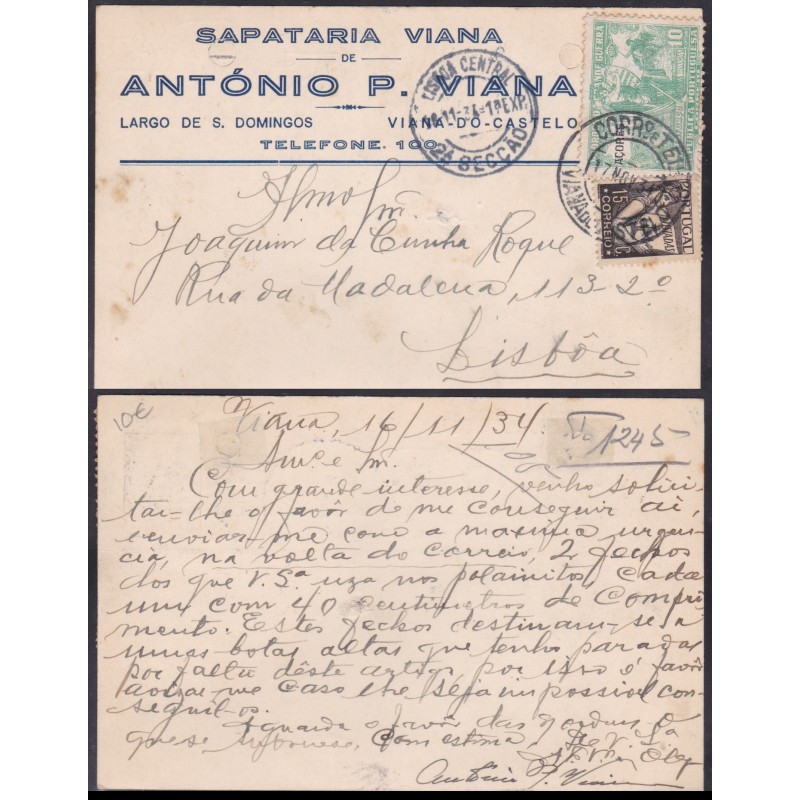 SAPATARIA VIANA
DE
ANTÓNIO P. VIANA
LARGO DE S. DOMINGOS VIANA-DO-CASTELO
TELEFONE. 100
LISBOA CENTRAL
11-34-1ª EXP.
2ª SECÇÃO
10
CORRº E TEL
AÇORES
NOV
VIANA DO CASTELO
PORTUGAL
15 C
CORREIO
Joaquim da Cunha Roque
Rua da Madalena, 113-2º
Lisbôa
10€
Viana, 16/11/34
Nº 1245
Com grande interesse, venho solici-
tar-lhe o favôr de me conseguir aí,
e enviar-me com a maxima urgen-
cia, na volta do correio, 2 fechos
dos que V. Sª uza nos polainitos, cada
um com 40 centimetros de compri-
mento. Estes fechos destinam-se a
umas botas altas que tenho paradas
por falta dêste artigo, por isso é favôr
avizar-me caso lhe seja impossivel con-
seguil-os.
Aguarda o favôr das
que se subscreve, com estima,
De V. Sª
António P. Viana